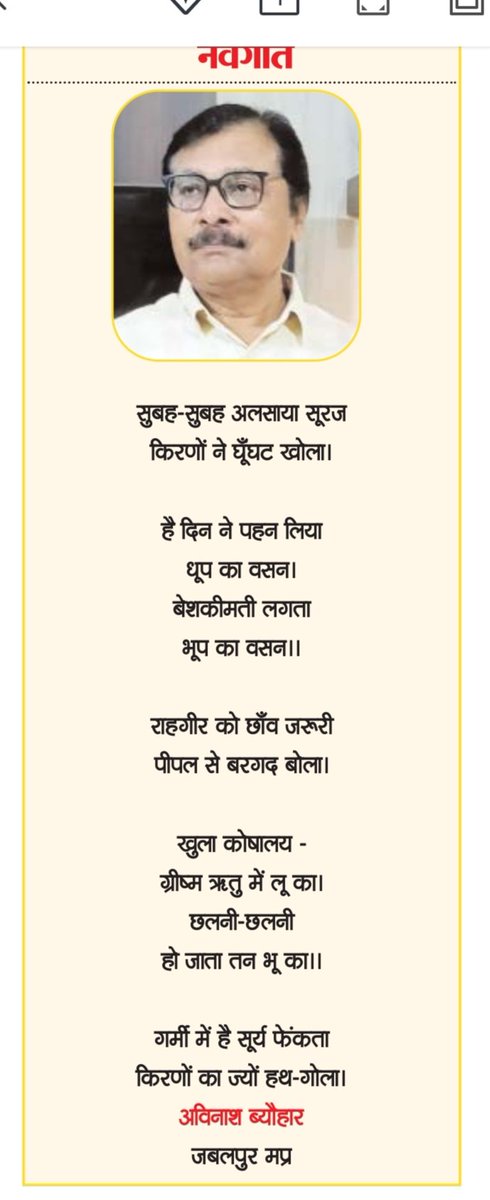 नवगीत
सुबह-सुबह अलसाया सूरज
किरणों ने घूँघट खोला।
है दिन ने पहन लिया
धूप का वसन।
बेशकीमती लगता
भूप का वसन।।
राहगीर को छाँव जरूरी
पीपल से बरगद बोला।
खुला कोषालय -
ग्रीष्म ऋतु में लू का।
छलनी-छलनी
हो जाता तन भू का।।
गर्मी में है सूर्य फेंकता
किरणों का ज्यों हथ-गोला।
अविनाश ब्यौहार
जबलपुर मप्र